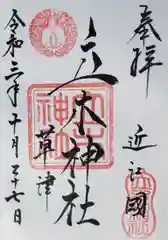 奉拝
近江國
立木神社
草津
令和三年十月二十七日